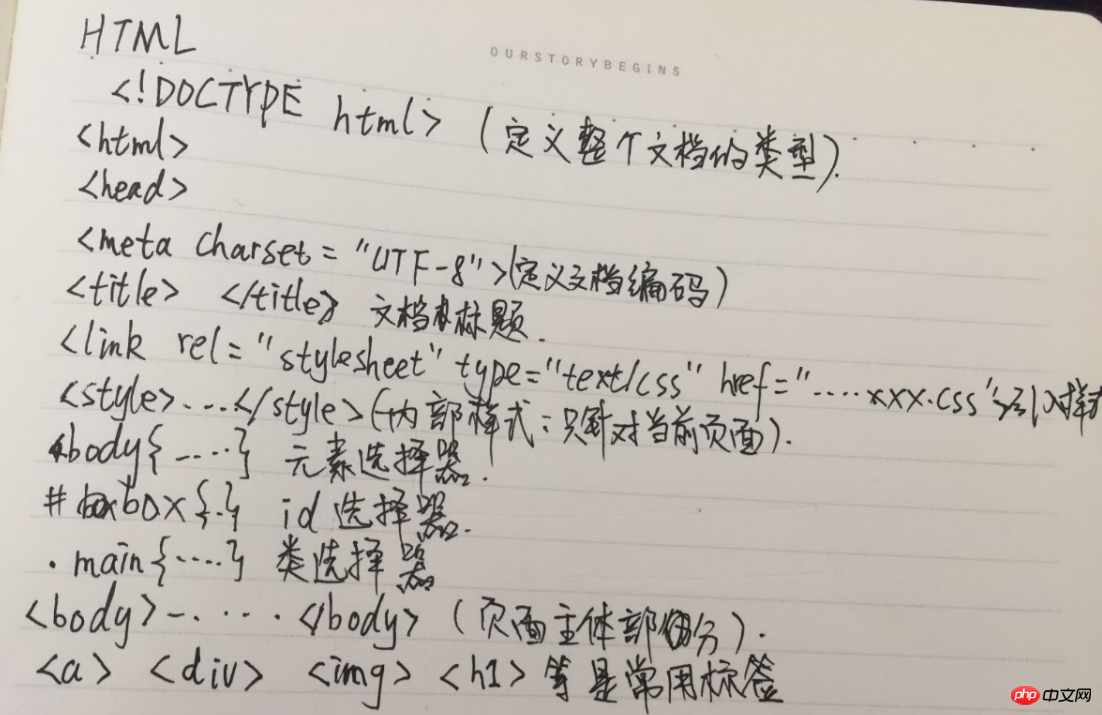 HTML
OURSTORYBEGINS
<!DOCTYPE html> (定义整个文档的类型).
<html>
<head>
<meta charset = "UTF-8">(定义文档编码)
<title> </title> 文档标题.
<link rel="stylesheet" type="text/css" href="....xxx.css">引入样式
<style>....</style>(内部样式:只针对当前页面).
body{.....} 元素选择器.
#box{..} id 选择器.
.main{....} 类选择器
<body>-....</body> (页面主体部分).
<a> <div> <img> <h1> 等是常用标签
php 中文网